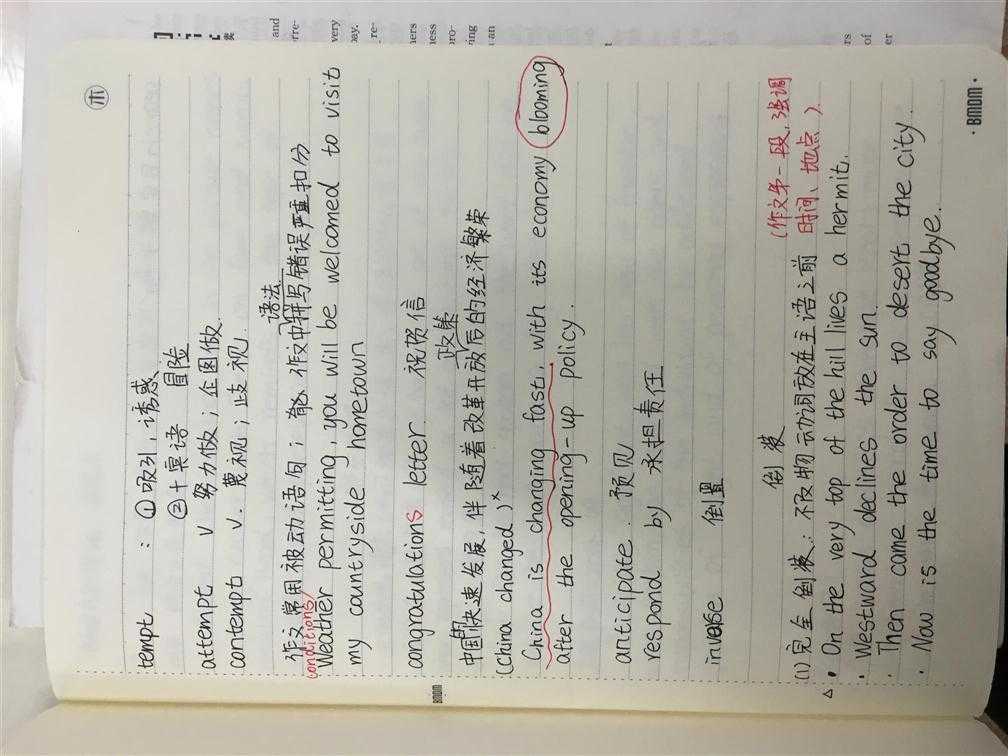 木
tempt : ①吸引,诱惑
②+宾语 冒险
attempt v 努力做;企图做.
contempt v. 蔑视;歧视.
语法
作文常用被动语句;作文中拼写错误严重扣分
conditions
Weather permitting, you will be welcomed to visit
my countryside hometown
congratulations letter 祝贺信
政策
中国快速发展,伴随着改革开放后的经济繁荣
(China changed) ×
China is changing fast, with its economy blooming
after the opening-up policy.
anticipate. 预见
respond by 承担责任
inverse 倒置
倒装
(1)完全倒装:不及物动词放在主语之前 (作文第一段,强调
时间、地点)
△ • On the very top of the hill lives a hermit.
• Westward declines the sun.
• Then came the order to desert the city.
• Now is the time to say goodbye.
BMDM
• BMDM •